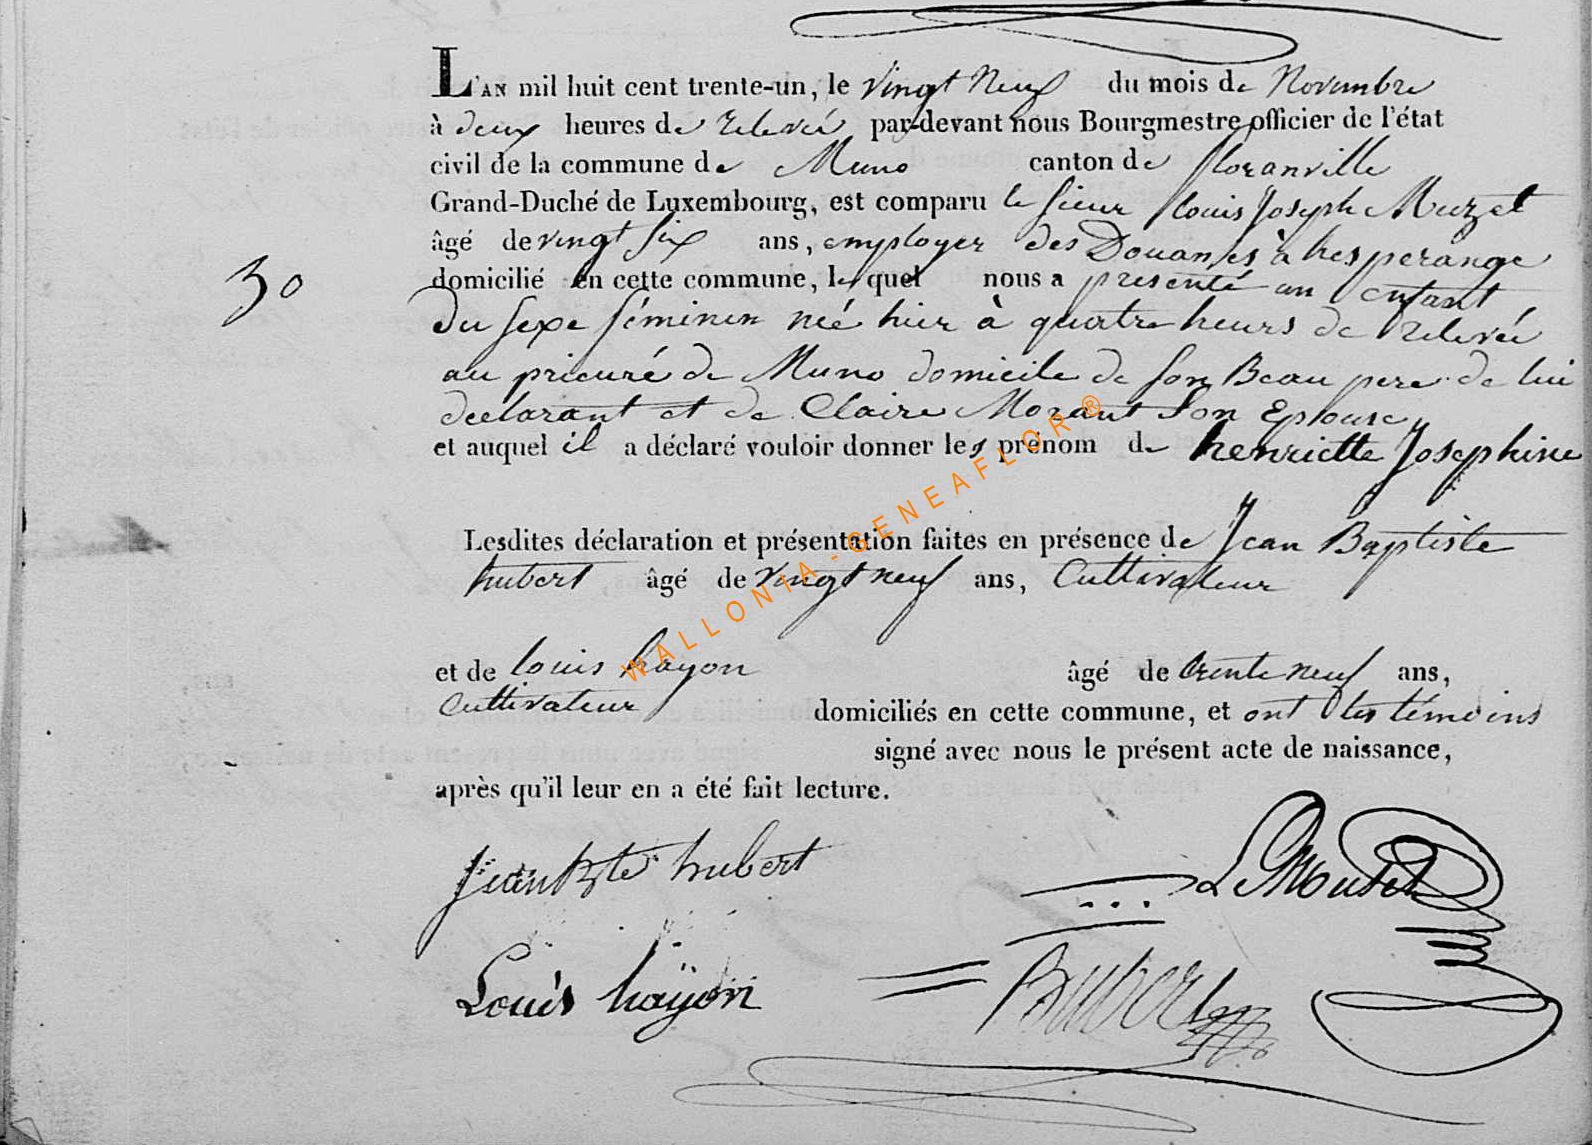 L'AN mil huit cent trente-un, le vingt neuf du mois de Novembre
à deux heures de relevée par-devant nous Bourgmestre officier de l'état
civil de la commune de Muno canton de floranville
Grand-Duché de Luxembourg, est comparu le sieur louis Joseph Muzet
âgé de vingt six ans, employer des Douannes à hesperange
30 domicilié en cette commune, lequel nous a presenté un enfant
du sexe féminin née hier à quatre heurs de relevée
au prieuré de Muno domicile de son Beau pere de lui
declarant et de Claire Morant son Epouse
et auquel il a déclaré vouloir donner les prénom de henriette Josephine
Lesdites déclaration et présentation faites en présence de Jean Baptiste
hubert âgé de vingt neuf ans, Cultivateur
et de louis hayon âgé de trente neuf ans,
Cultivateur domiciliés en cette commune, et ont les témoins
signé avec nous le présent acte de naissance,
après qu'il leur en a été fait lecture.
jean Bte hubert
Louis hayon
WALLONIA-GENEAFLOR®